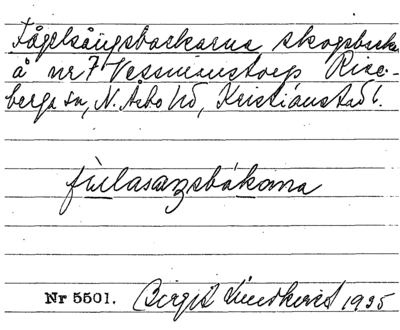 Fågelsångsbackarna skogsbacke
å nr 7 Vessmanstorp Rise-
berga sn, N. Åsbo hd, Kristianstad l.
fúlasaŋsbákona
Nr 5501. Birgit Lindkvist 1935